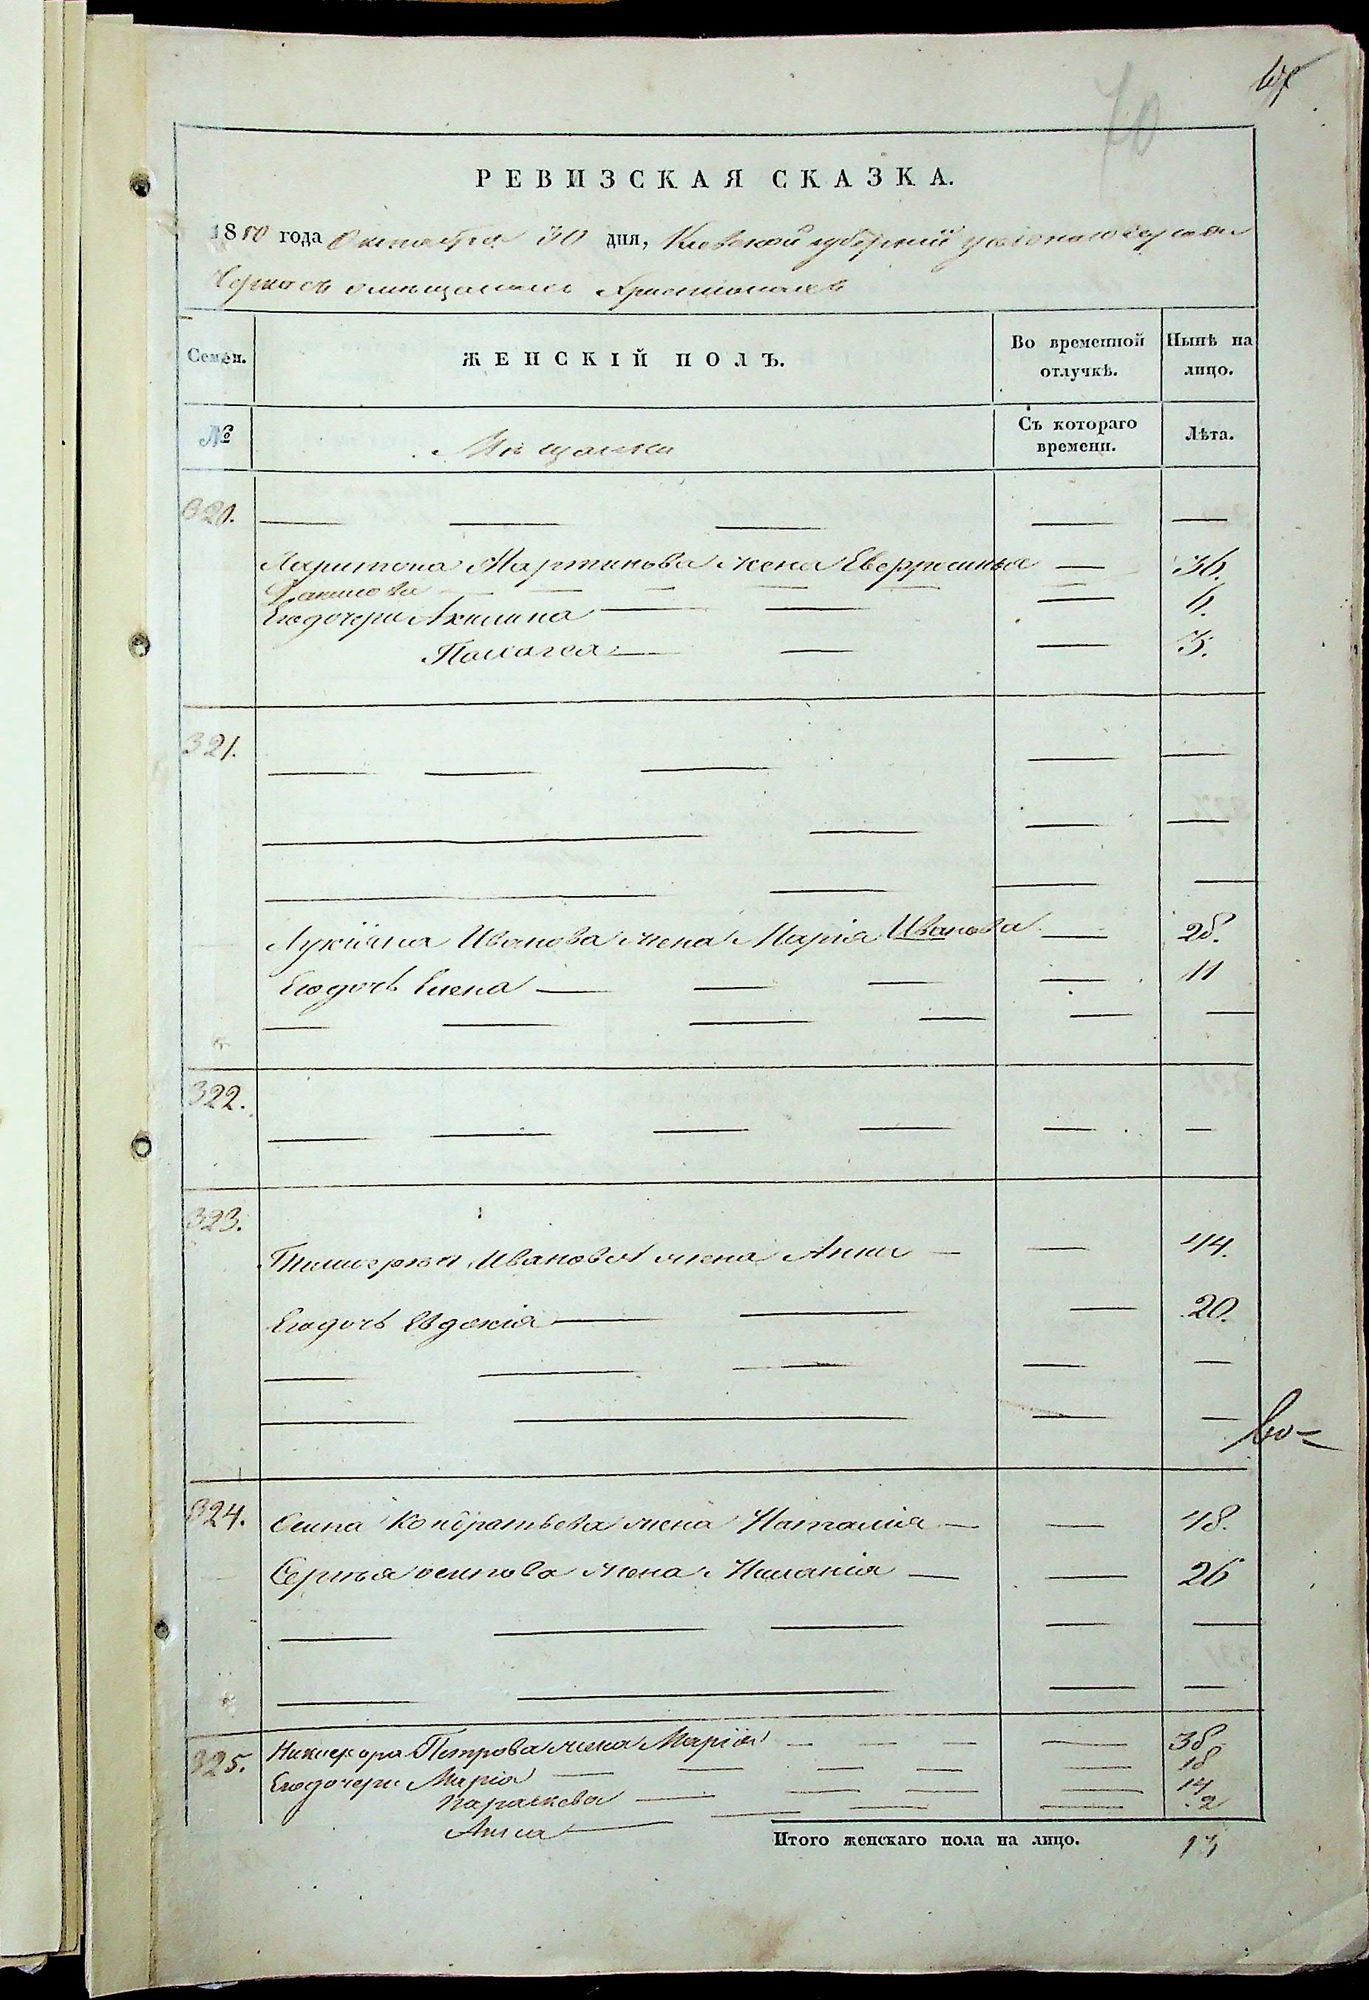 70
РЕВИЗСКАЯ СКАЗКА.
1850 года Октября 30 дня, Киевской губернии уезднаго города
Черкасъ о мѣщанахъ Христіанахъ
Семѣи.
ЖЕНСКІЙ ПОЛЪ.
Во временной отлучкѣ.
Нынѣ на лицо.
№
Мѣщанки
Съ котораго времени.
Лѣта.
320.
Харитона Мартинова жена Евфросинья — 36.
Его дочери Акилина — 6.
Палагея — 3.
321.
Лукіяна Иванова жена Марія Иванова — 28.
Его дочь Елена — 11
322.
323.
Тимофея Иванова жена Анна — 44.
Его дочь Евдокія — 20.
324. Осипа Кондратьева жена Наталія — 48.
Сергѣя осипова жена Меланія — 26
325. Никифора Петрова жена Марія — 38
Его дочери Марія — 18
Параскева — 14
Анна — 2
Итого женскаго пола на лицо. 13